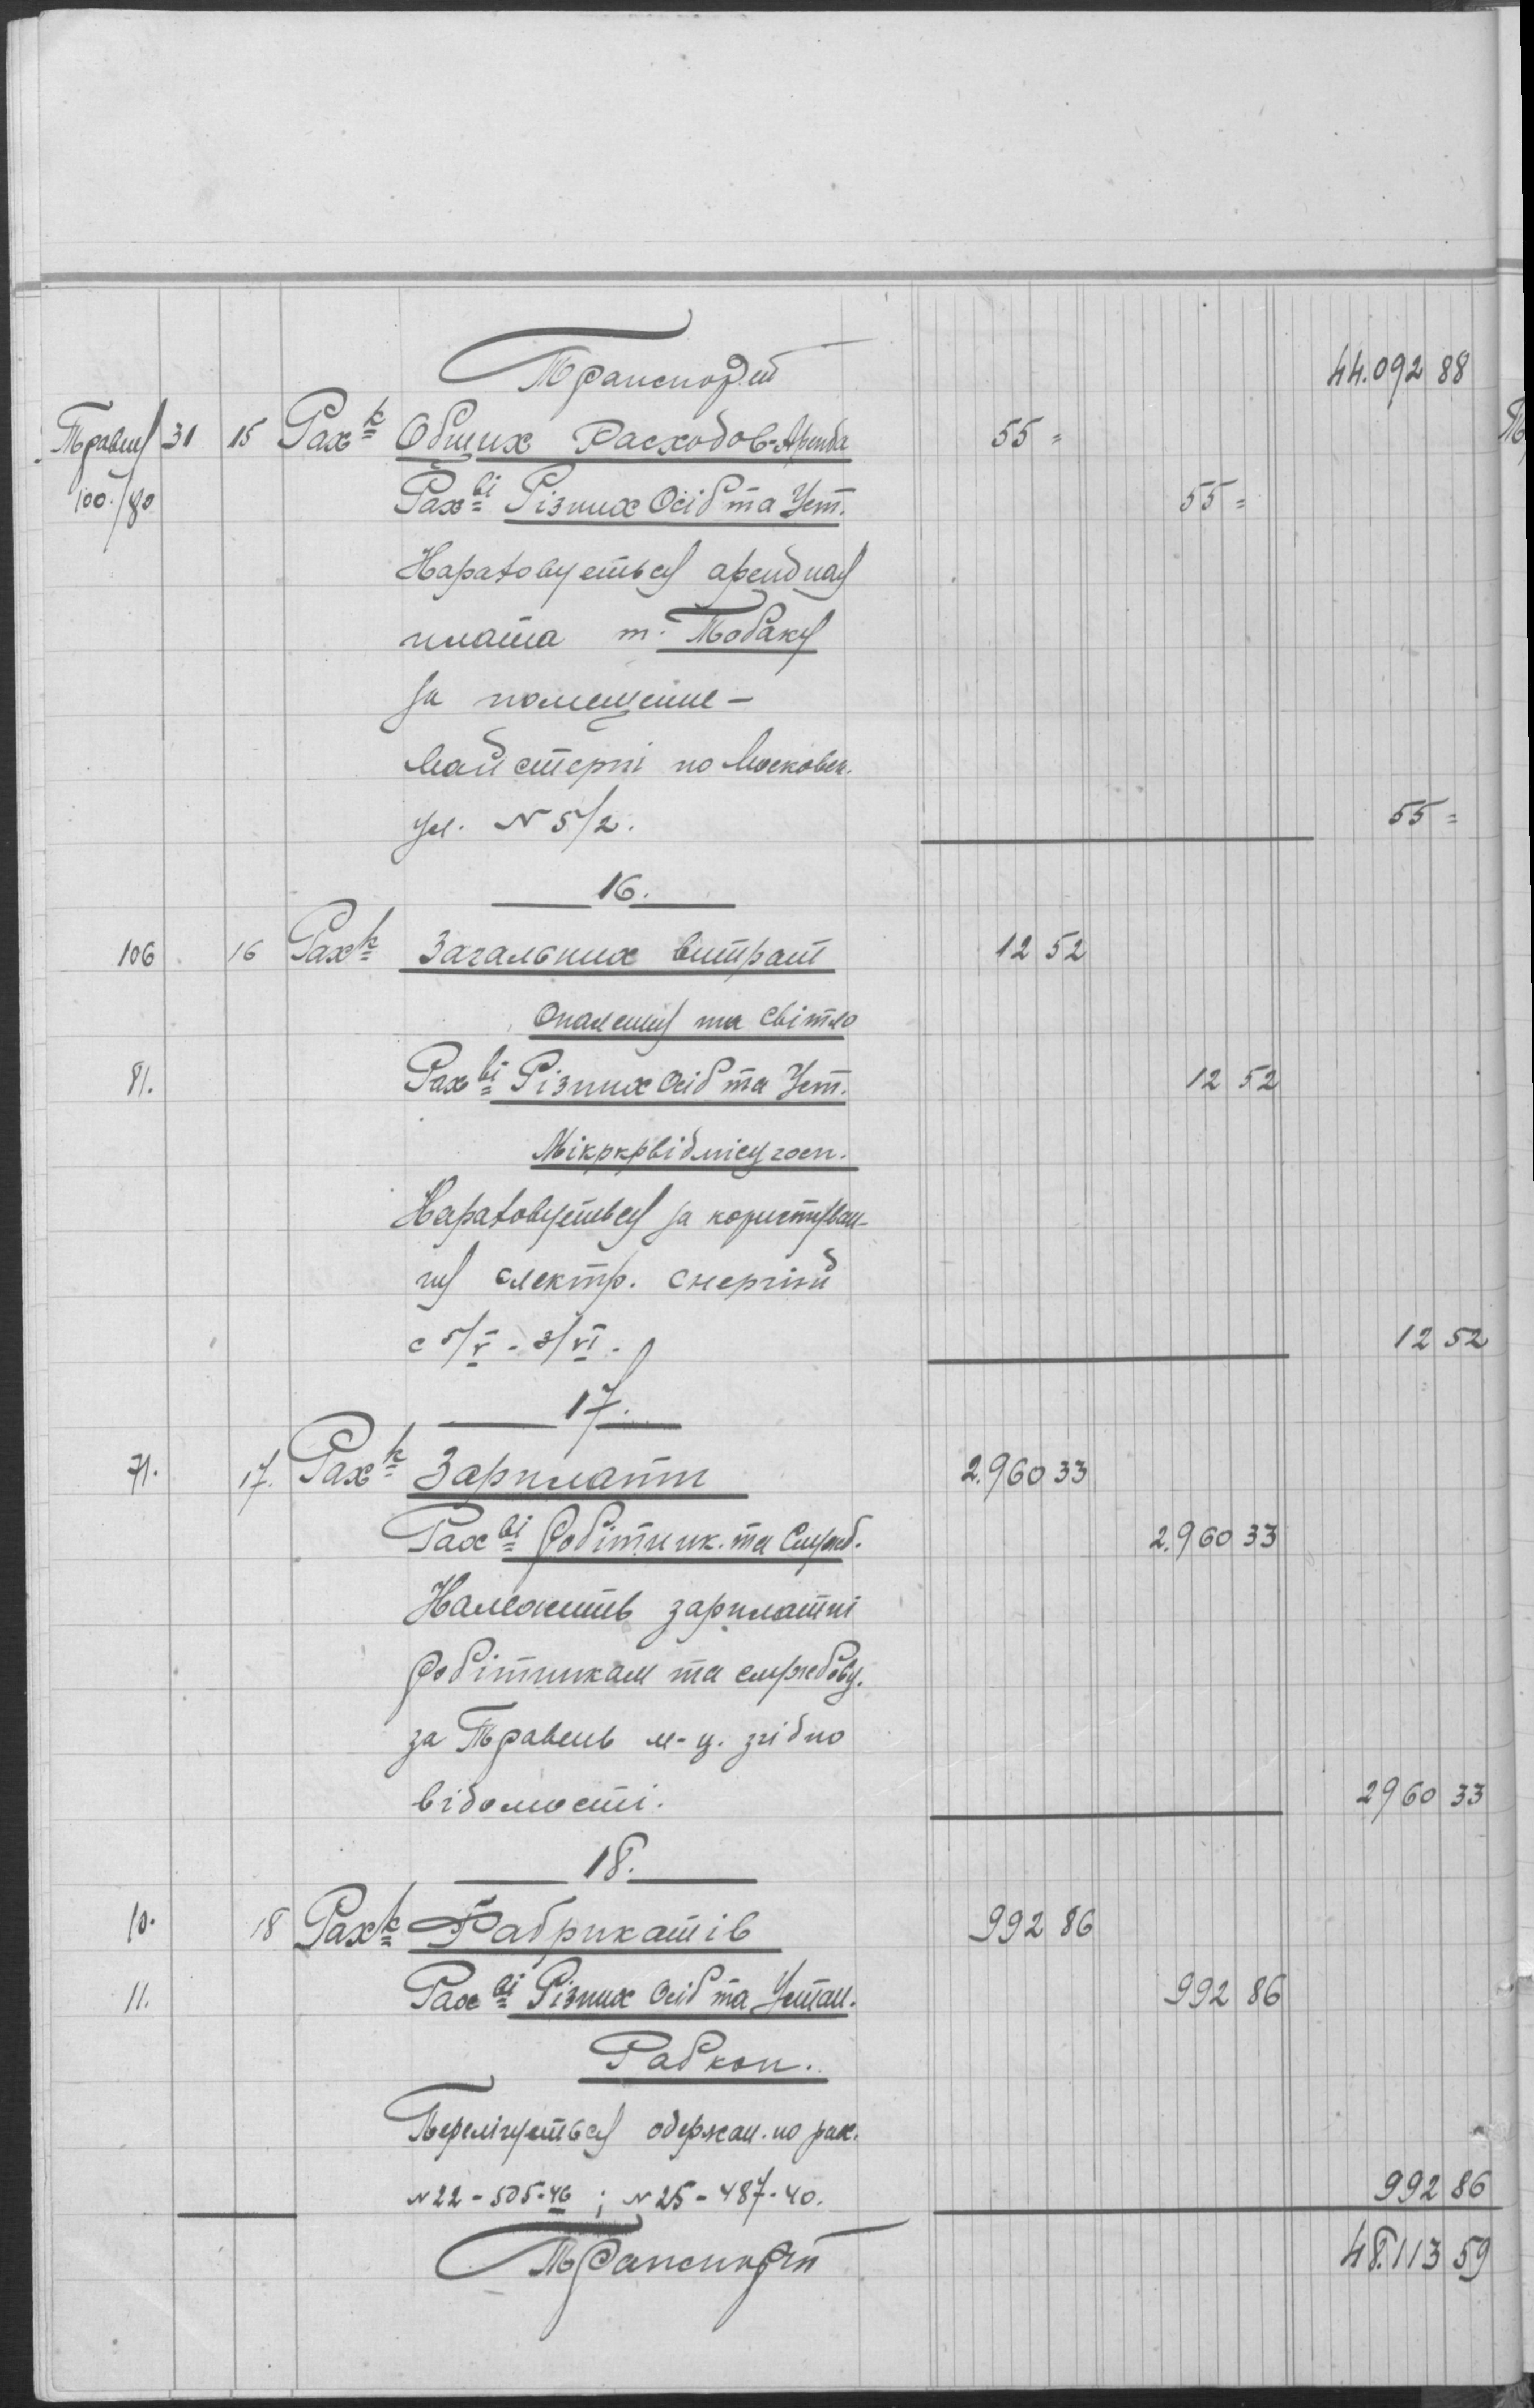 Транспорт 44.092 88
Травня 31 15 Рах-к Общих Расходов-Аренда 55 =
100./80 Рах-ві Різних Осіб та Уст. 55 =
Нараховується арендная
плата т. Тобакуя
за помещение –
майстерні по Московск.
ул. N 5/2. 55 =
16.
106 16 Рах-к Загальних витрат 12 52
Опалення та світло
81. Рах-ві Різних Осіб та Уст. 12 52
Нараховується за користуван-
ня електр. енергією
с 5/V - 3/VI - 12 52
17.
71. 17. Рах-к Зарплати 2.960 33
Рах-ві Робітник. та Служб. 2.960 33
Належить зарплатні
робітникам та службовц.
за Травень м-ц. згідно
відомості. 2960 33
18.
10. 18 Рах-к Фабрикатів 992 86
11. Рах-ві Різних Осіб та Устан. 992 86
Рабкоп.
Перелічується одержан. по рах.
N 22 - 505-46 ; N 25 - 487-40. 992 86
Транспорт 48.113 59